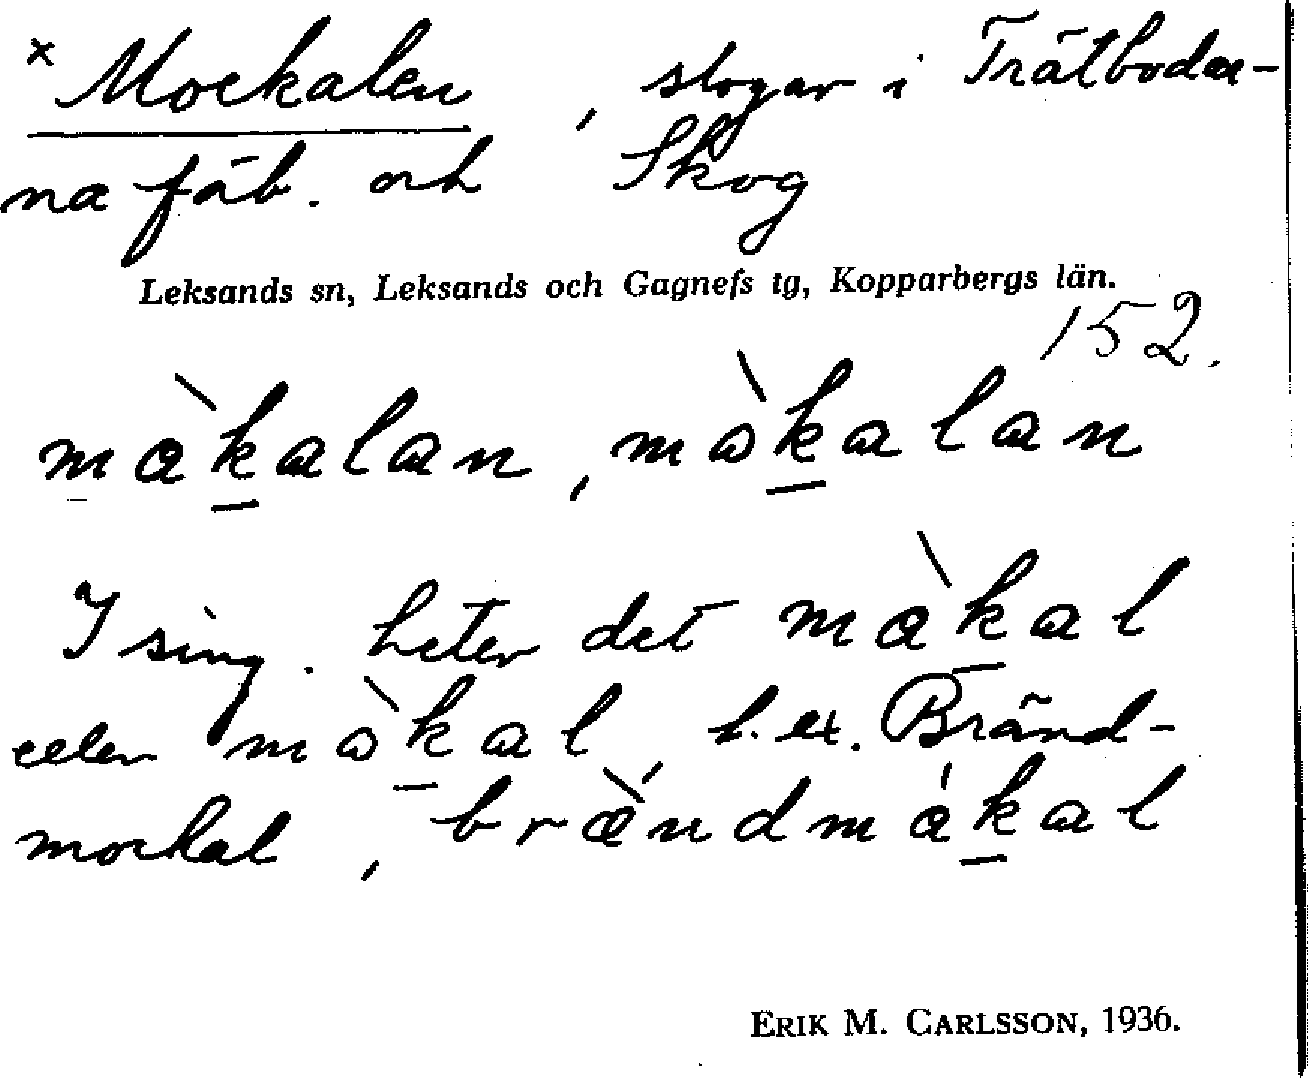 x Mockalen, slogar i Trätbodar-
na fäb. och Skog
Leksands sn, Leksands och Gagnefs tg, Kopparbergs län.
152.
màkalan, mòkalan
I sing. heter det màkal
eller mòkal, t. ex. Bränd-
mockal, brä̀ndmákal
ERIK M. CARLSSON, 1936.